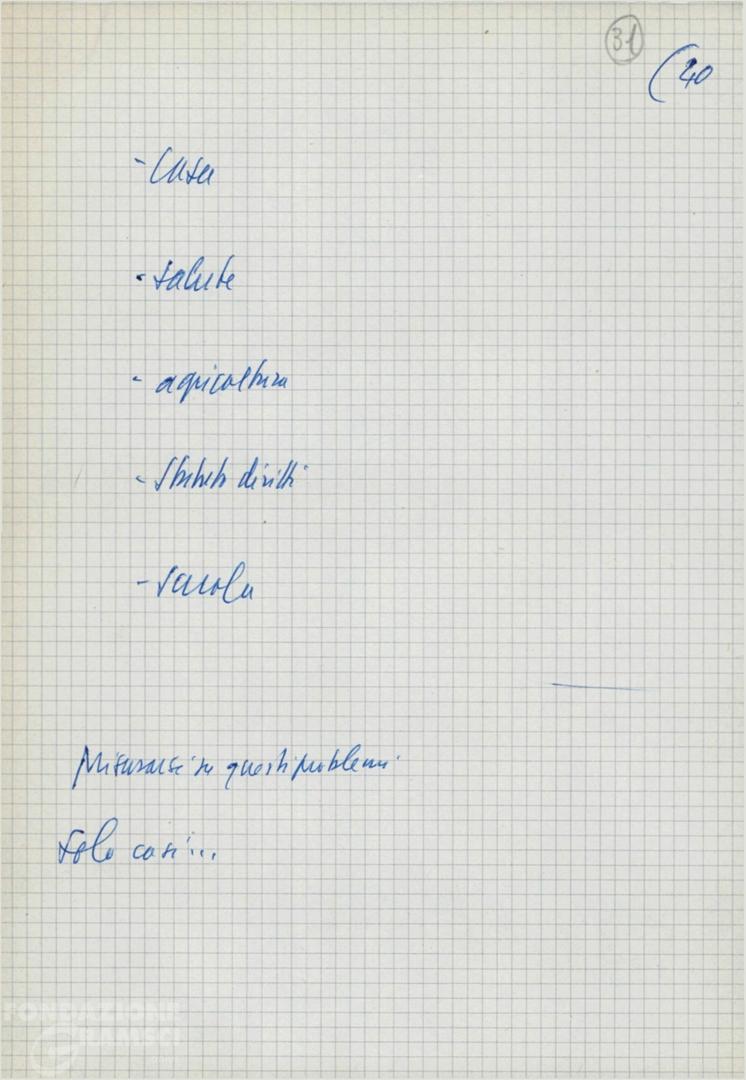 31
(40
- Casa
- salute
- agricoltura
- Statuto diritti
- scuola
Misurarsi su questi problemi
solo così...
FONDAZIONE
GRAMSCI